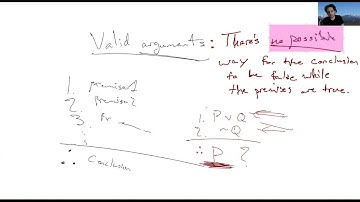 Valid arguments: There's no possible
way for the conclusion
to be false while
the premises are true.
1. premise 1
2. Premise 2
3. Pr
∴ Conclusion
1. P ∨ Q
2. ~Q
∴ P ?